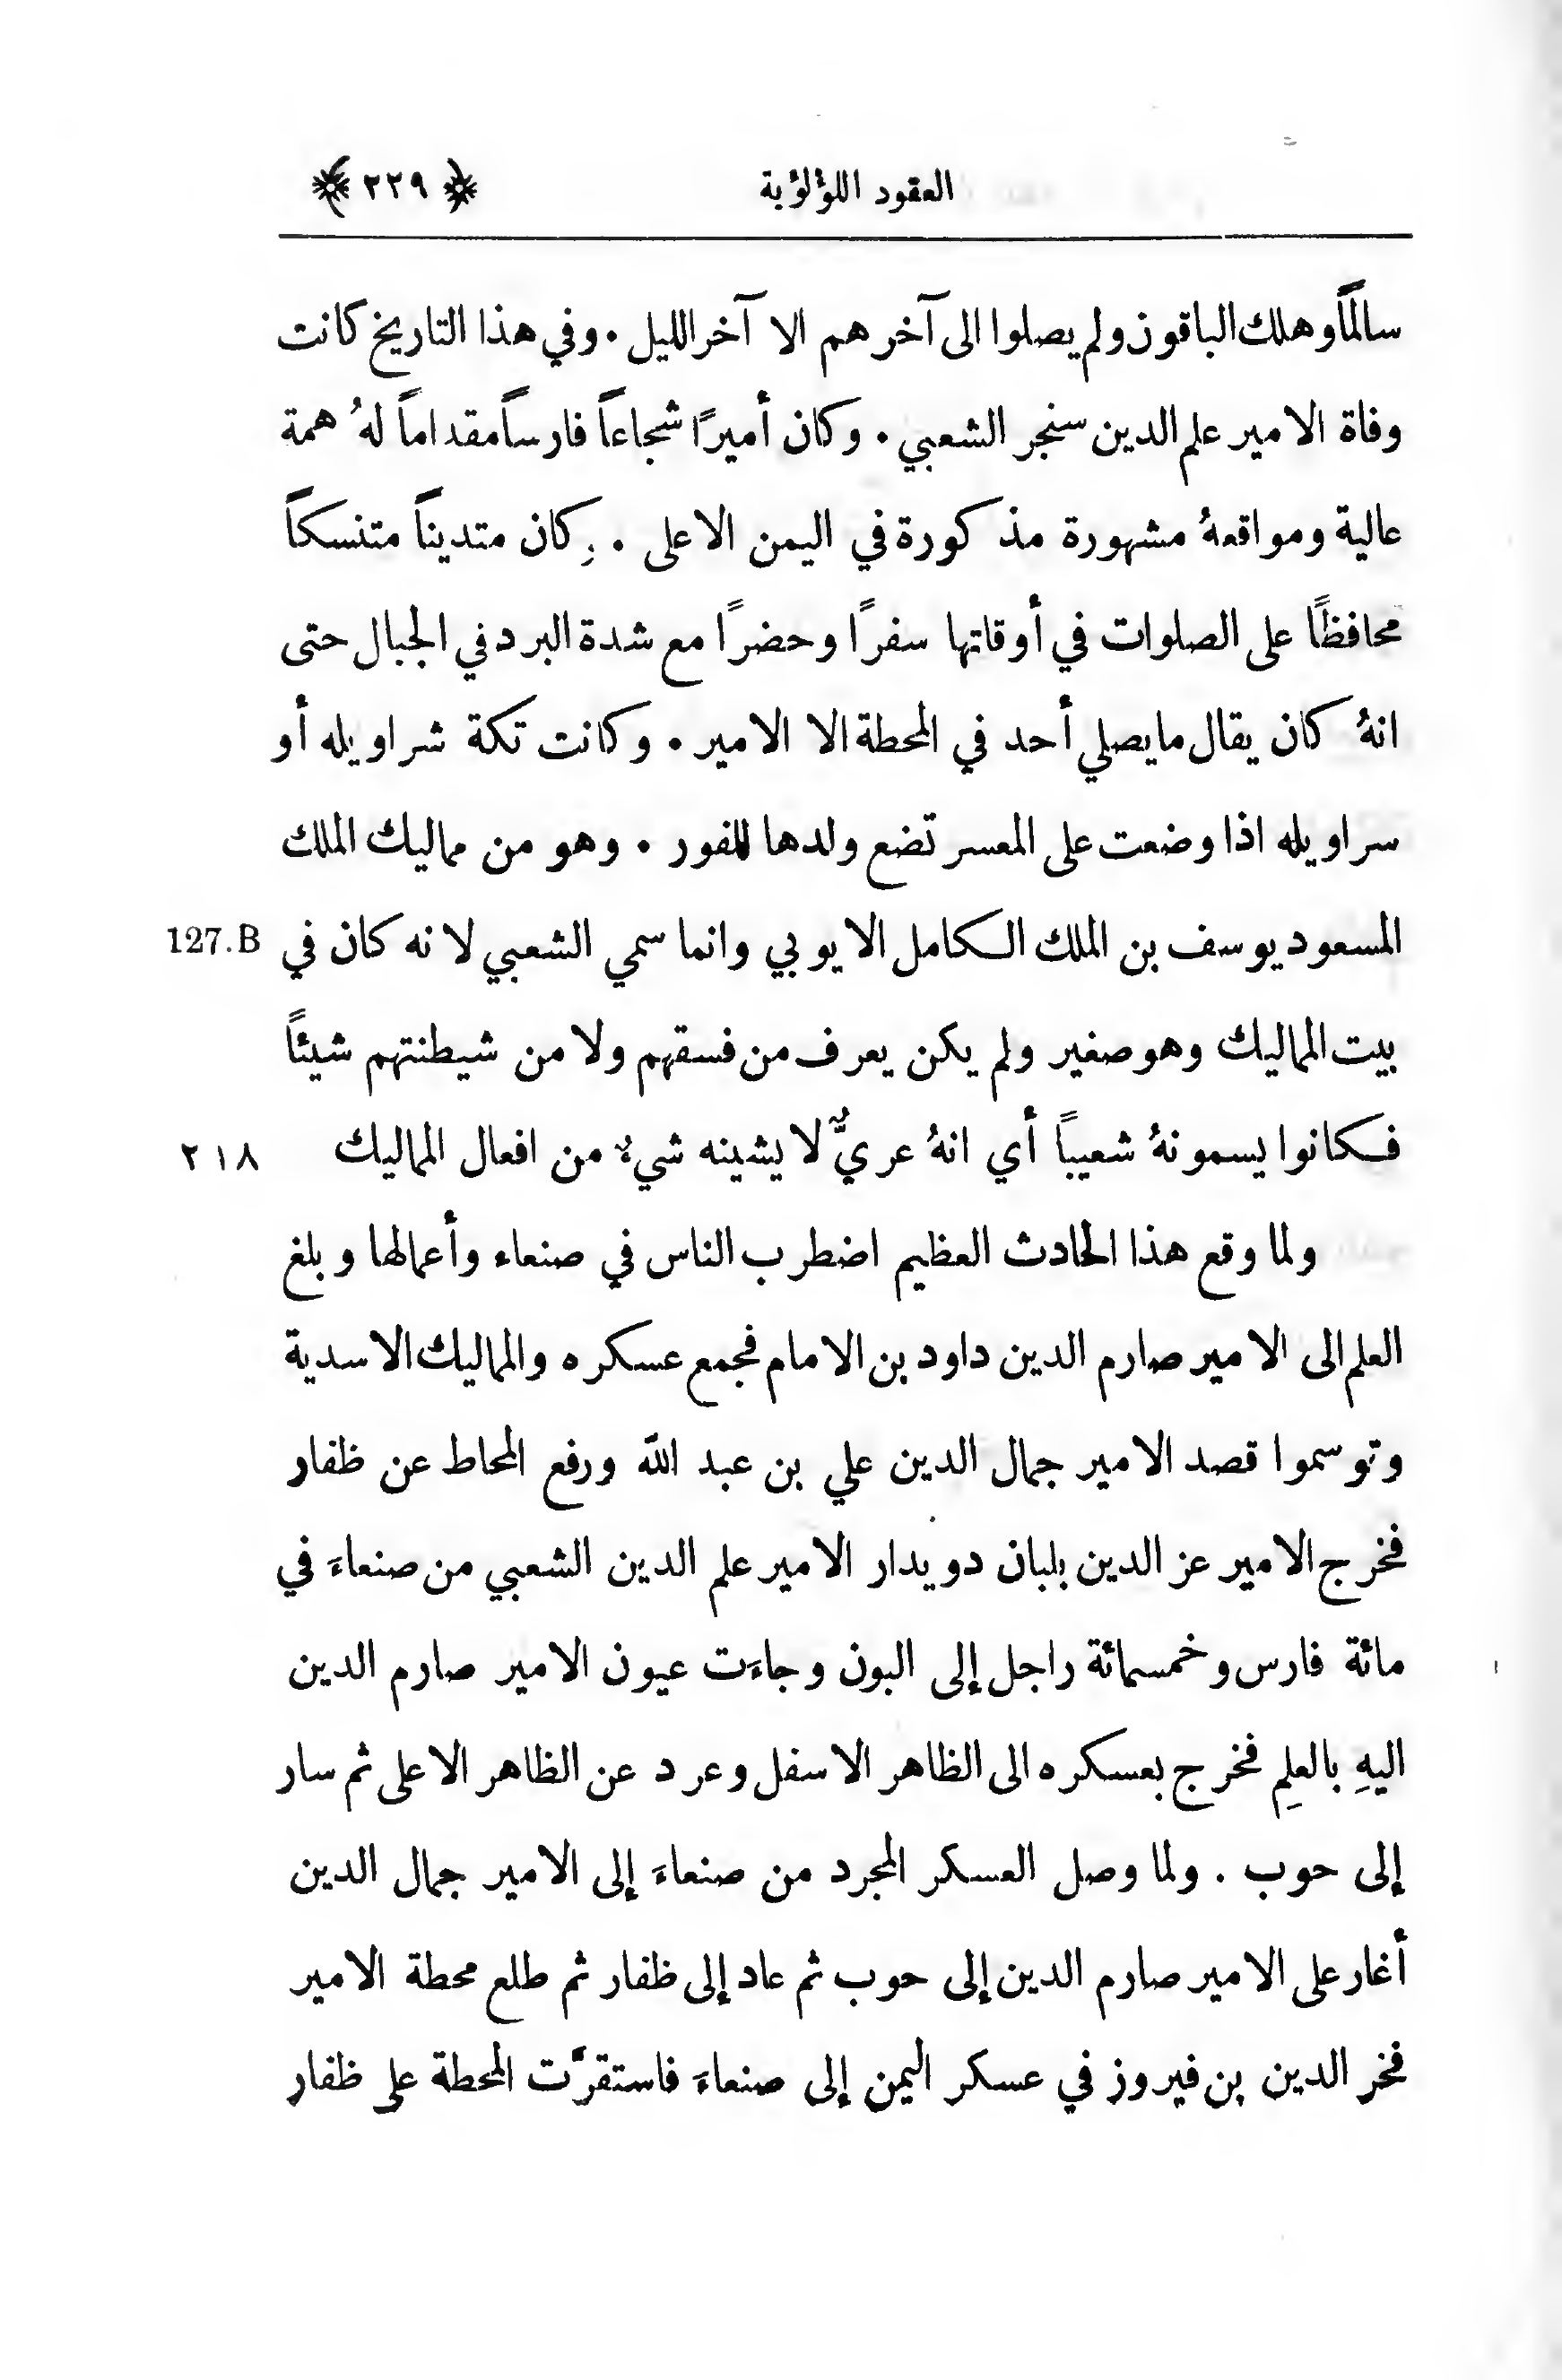 العقود اللؤلؤية ﴿ ٢٢٩ ﴾
سالماً وهلك الباقون ولم يصلوا الى آخرهم الا آخر الليل . وفي هذا التاريخ كانت
وفاة الامير علم الدين سنجر الشعبي . وكان أميرًا شجاعاً فارساً مقداماً لهُ همة
عالية ومواقعهُ مشهورة مذكورة في اليمن الاعلى . وكان متديناً متنسكاً
محافظًا على الصلوات في أوقاتها سفرًا وحضرًا مع شدة البرد في الجبال حتى
انهُ كان يقال ما يصلي أحد في المحطة الا الامير . وكانت تكة شراويله أو
سراويله اذا وضعت على المعسر تضع ولدها للفور . وهو من مماليك الملك
المسعود يوسف بن الملك الكامل الايوبي وانما سمي الشعبي لانه كان في 127.B
بيت المماليك وهو صغير ولم يكن يعرف من فسقهم ولا من شيطنتهم شيئاً
فكانوا يسمونهُ شعيبًا أي انهُ عريٌّ لا يشينه شيءٌ من افعال المماليك ٢١٨
ولما وقع هذا الحادث العظيم اضطرب الناس في صنعاء وأعمالها وبلغ
العلم الى الامير صارم الدين داود بن الامام فجمع عسكره والمماليك الاسدية
وتوسموا قصد الامير جمال الدين علي بن عبد الله ورفع المحاط عن ظفار
فخرج الامير عز الدين بلبان دويدار الامير علم الدين الشعبي من صنعاءَ في
مائة فارس وخمسمائة راجل إلى البون وجاءَت عيون الامير صارم الدين
اليهِ بالعلِم فخرج بعسكره الى الظاهر الاسفل وعرد عن الظاهر الاعلى ثم سار
إلى حوب . ولما وصل العسكر المجرد من صنعاءَ إلى الامير جمال الدين
أغار على الامير صارم الدين إلى حوب ثم عاد إلى ظفار ثم طلع محطة الامير
فخر الدين بن فيروز في عسكر اليمن إلى صنعاءَ فاستقرَّت المحطة على ظفار